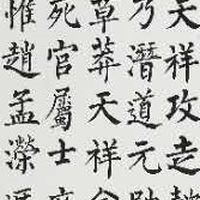 天祥攻走
乃潛道元帥
草莽天祥
死官屬士
惟趙孟濚